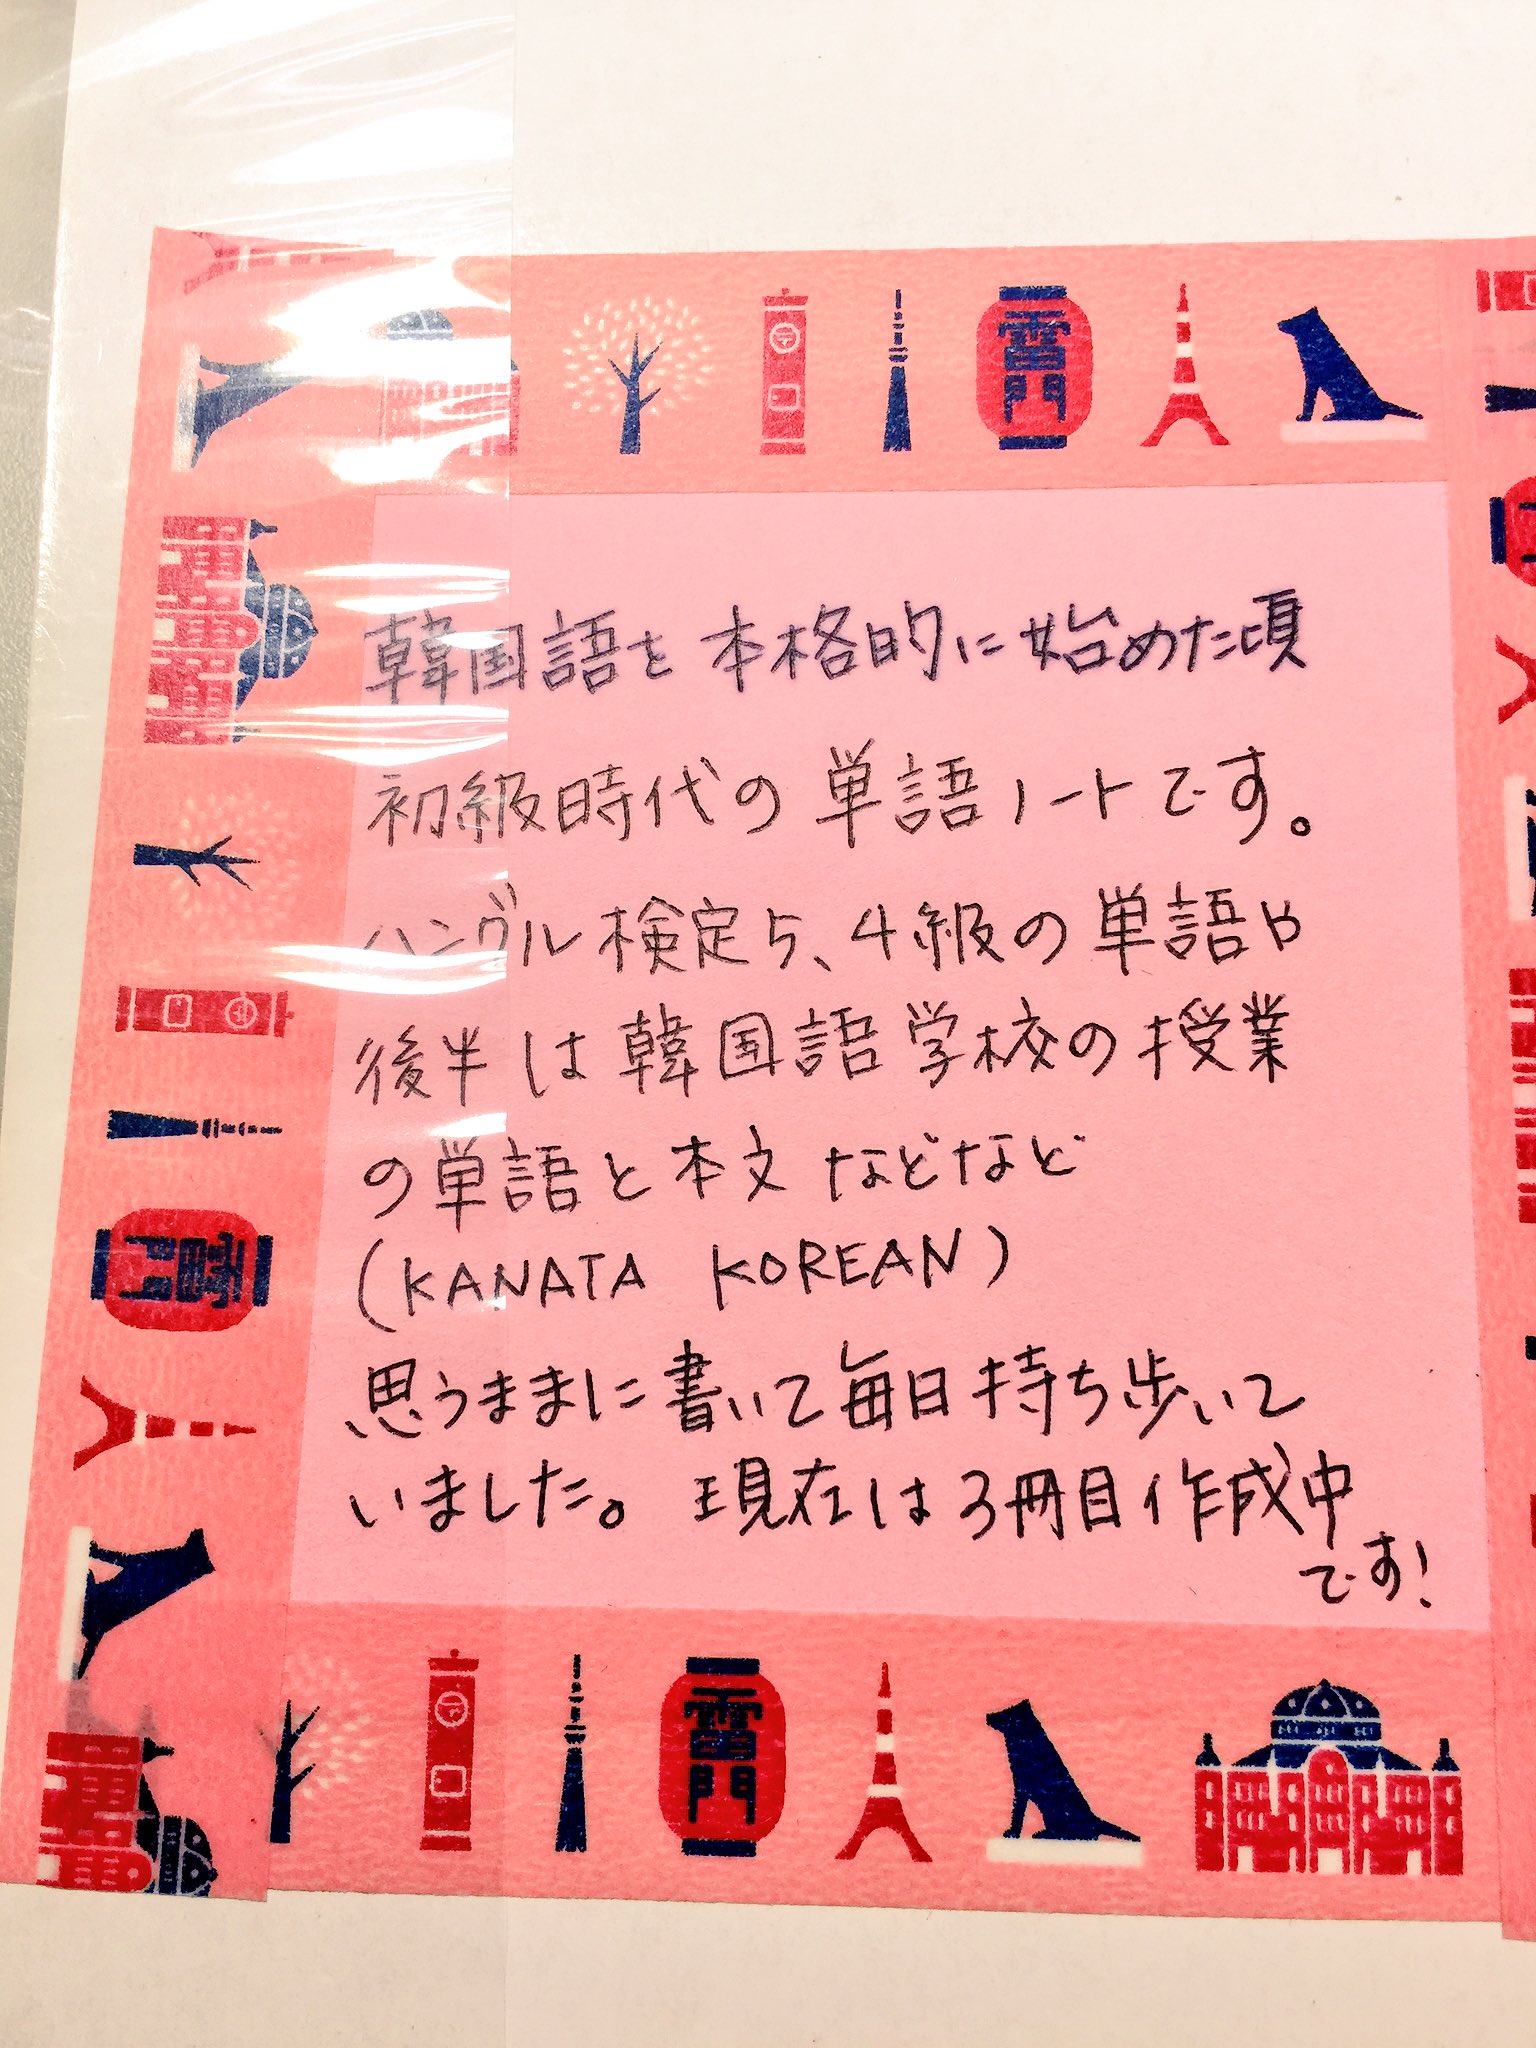 雷門
韓国語を本格的に始めた頃
初級時代の単語ノートです。
ハングル検定5、4級の単語や
後半は韓国語学校の授業
の単語と本文などなど
(KANATA KOREAN)
思うままに書いて毎日持ち歩いて
いました。現在は3冊目作成中
です!
雷門
雷門